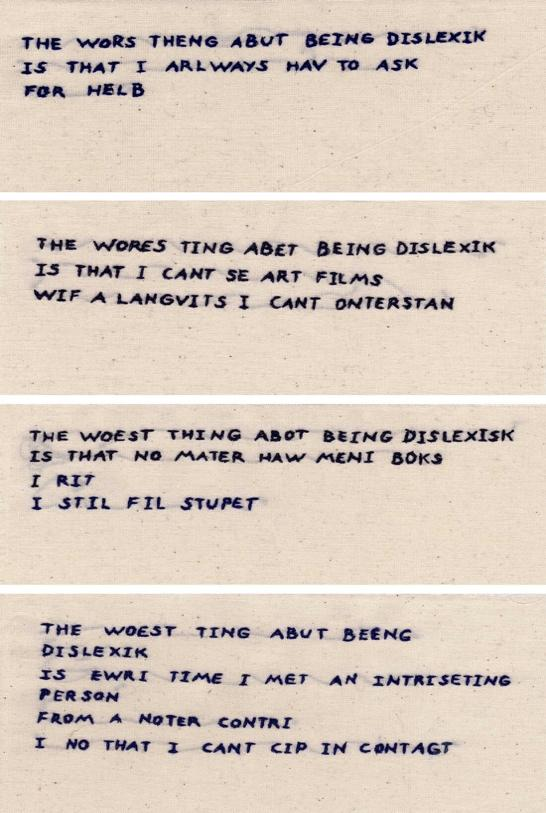 THE WORS THENG ABUT BEING DISLEXIK
IS THAT I ARLWAYS HAV TO ASK
FOR HELB
THE WORES TING ABET BEING DISLEXIK
IS THAT I CANT SE ART FILMS
WIF A LANGVITS I CANT ONTERSTAN
THE WOEST THING ABOT BEING DISLEXISK
IS THAT NO MATER HAW MENI BOKS
I RIT
I STIL FIL STUPET
THE WOEST TING ABUT BEENG
DISLEXIK
IS EWRI TIME I MET AN INTRISETING
PERSON
FROM A NOTER CONTRI
I NO THAT I CANT CIP IN CONTAGT